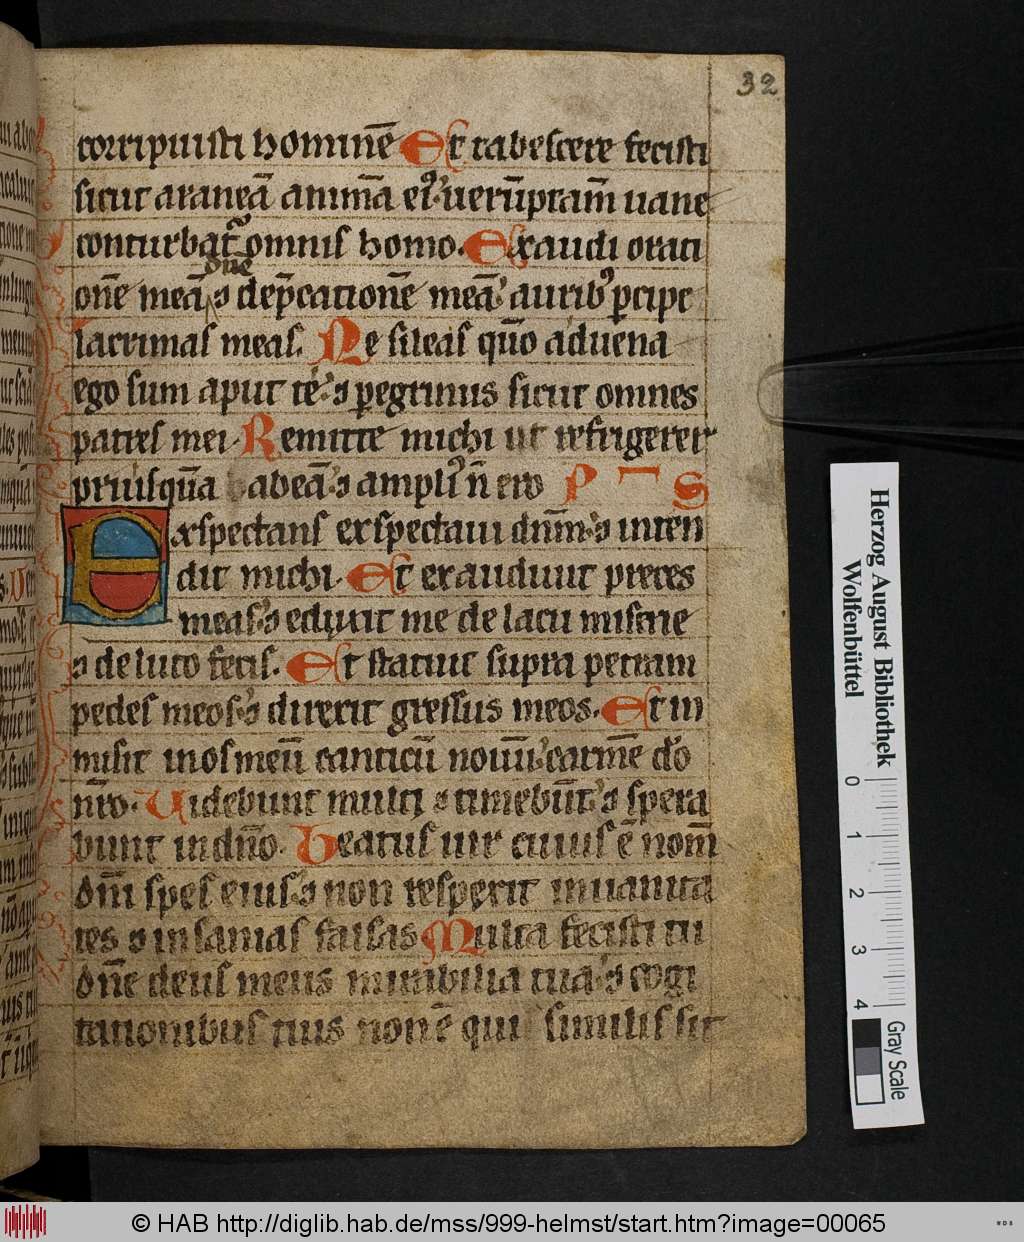 32
corripuisti hominē Et tabescere fecisti
sicut araneā animā eiꝰ uerūptam̄ uane
conturbat̄ omnis homo. Exaudi orati
dn̄e
onē meā ⁊ dep̄cationē meā auribꝰ p̄cipe
lacrimas meas. Ne sileas qm̄o aduena
ego sum aput te ⁊ ꝑegrinus sicut omnes
patres mei. Remitte michi ut refrigerer
priusquā abeā ⁊ ampliꝰ n̄ ero P S
Exspectans exspectaui dn̄m ⁊ inten
dit michi. Et exaudiuit preces
meas ⁊ eduxit me de lacu miserie
⁊ de luto fecis. Et statuit supra petram
pedes meos ⁊ direxit gressus meos. Et in
misit in os meū canticū nouū carmē do
nr̄o. Uidebunt multi ⁊ timebūt ⁊ spera
bunt in dn̄o. Beatus uir cuius ē nom̄
dn̄i spes eius ⁊ non respexit in uanita
tes ⁊ insanias falsas Multa fecisti tu
dn̄e deus meus mirabilia tua ⁊ cogi
tationibus tuis non ē qui similis sit
Herzog August Bibliothek
Wolfenbüttel
0 1 2 3 4
Gray Scale
© HAB http://diglib.hab.de/mss/999-helmst/start.htm?image=00065